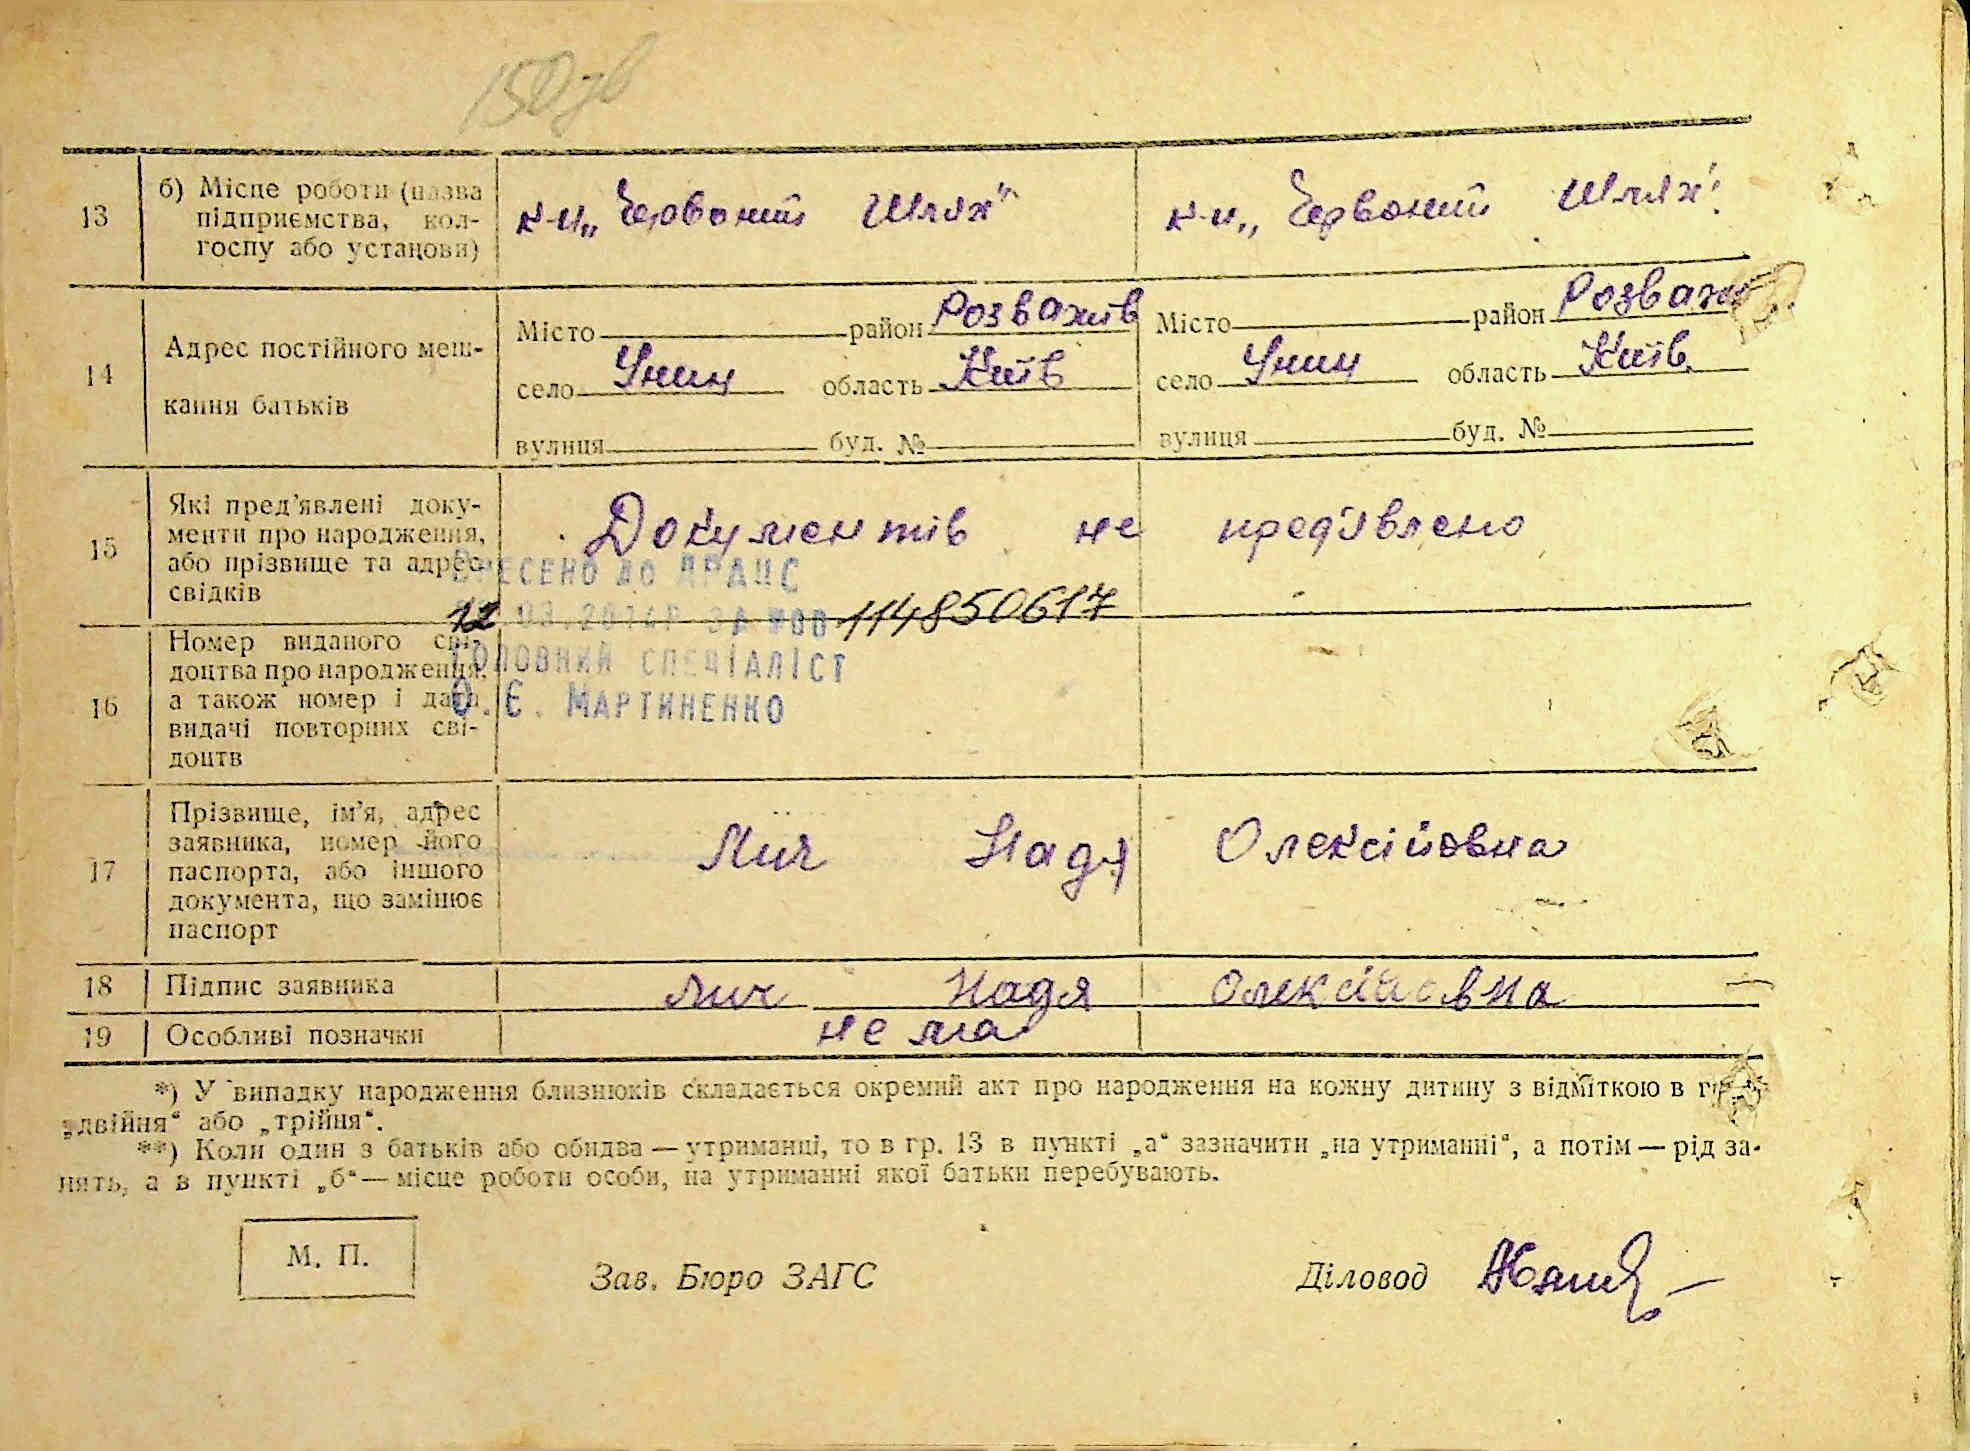 150 зв
13
б) Місце роботи (назва
підприємства, кол-
госпу або установи)
к-п „Червоний Шлях"
к-п „Червоний Шлях".
14
Адрес постійного меш-
кання батьків
Місто район Розважів
село Унин область Київ
вулиця буд. №
Місто район Розваж
село Унин область Київ
вулиця буд. №
15
Які пред'явлені доку-
менти про народження,
або прізвище та адрес
свідків
Документів не пред'явлено
Внесено до ДРАЦС
12.03.2014р за №00 114850617
Головний спеціаліст
О.Є. Мартиненко
16
Номер виданого сві-
доцтва про народження,
а також номер і дата
видачі повторних сві-
доцтв
17
Прізвище, ім'я, адрес
заявника, номер його
паспорта, або іншого
документа, що замінює
паспорт
Лич Надя Олексійовна
18 Підпис заявника Лич Надя Олексійовна
19 Особливі позначки нема
*) У випадку народження близнюків складається окремий акт про народження на кожну дитину з відміткою в гр.
„двійня" або „трійня".
**) Коли один з батьків або обидва — утриманці, то в гр. 13 в пункті „а" зазначити „на утриманні", а потім — рід за-
нять, а в пункті „б" — місце роботи особи, на утриманні якої батьки перебувають.
М. П.
Зав. Бюро ЗАГС
Діловод